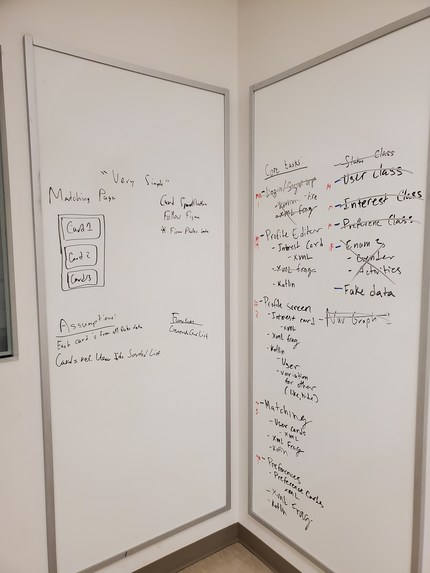 "Very Simple"
Matching Page
Card 1
Card 2
Card 3
Card
Follow Figma
* From
Assumptions:
Each card is from
Functions
Cards
User
Sorted List
Core tasks
- Login/Sign up
- xml frag
- Profile Editor
- Interest card
- XML
- Xml frags
- Kotlin
- Profile Screen
- Interest card
- xml
- xml frag
- Kotlin
- User
- variation
for other
(like,
- Matching
- User cards
- xml
- xml frag
- Kotlin
- Preferences
- Preference Cards
- xml
- Xml Frag
- Kotlin
- Status Class
- User class
- Interest Class
- Preference Class
- Enums
- Gender
- Activities
- Fake data
- Nav Graph